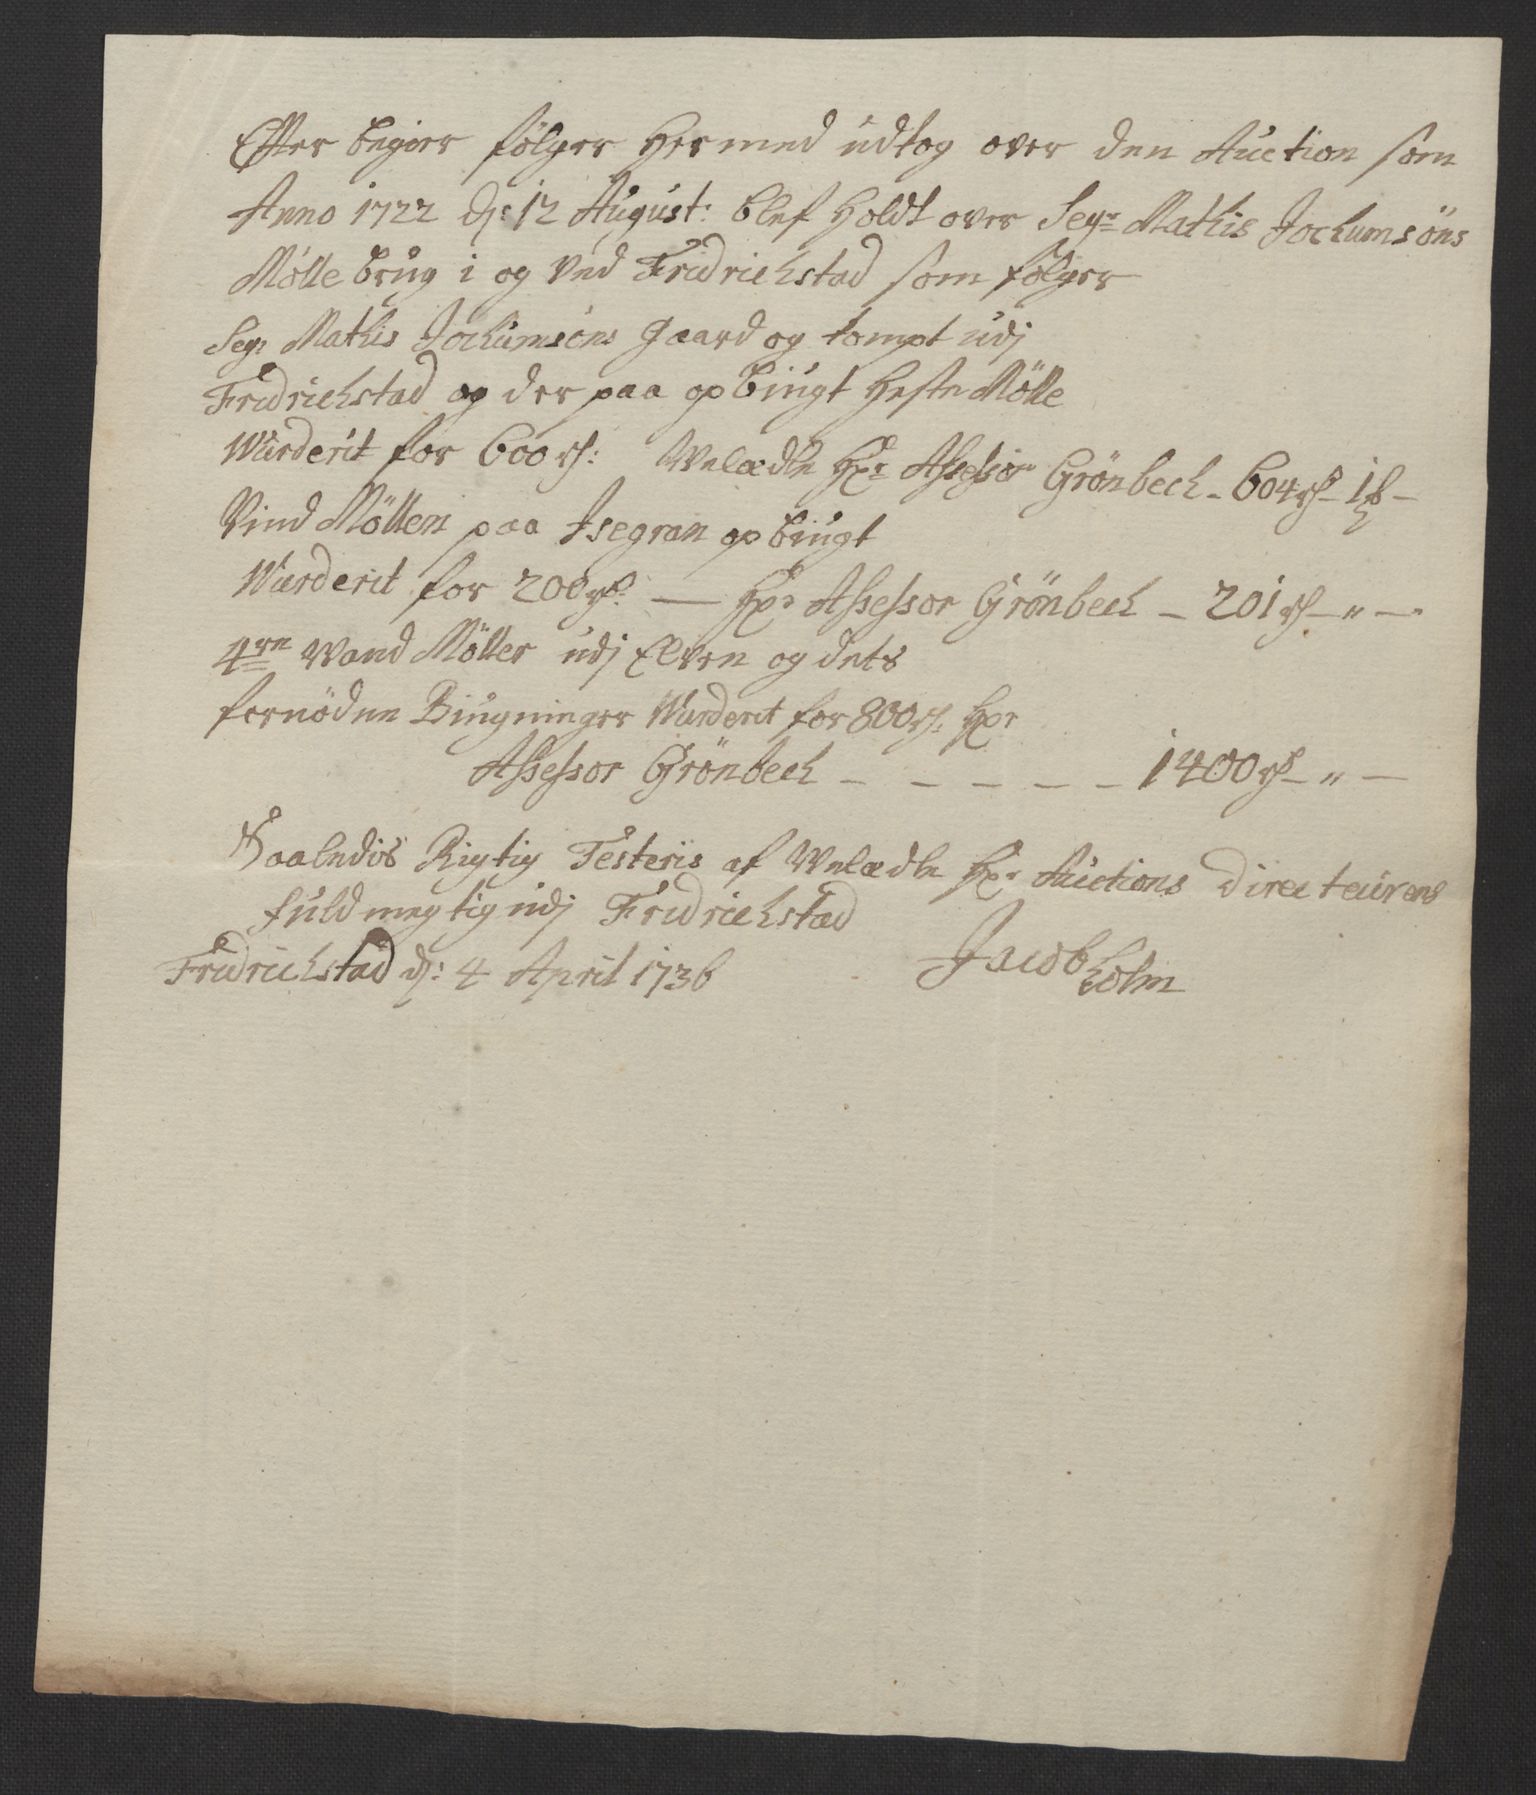 Efter begier følger Hermed udtog over den Auction som
Anno 1722 dj: 12 August: blef Holdt over Segr Mathis Jochumsöns
Mölle brug i og ved Fridrichstad som følger
Segr Mathis Jochumsöns gaard og tompt udj
Fridrichstad og der paa op biugt Heste Mölle
Wurderit for 600 rd: Welædle Hr Assessor Grönbech - 604 rd - 1 ß -
Vind Möllen paa Isegran op biugt
Wurderit for 200 rd: — Hr Assessor Grönbech - 201 rd - " -
4re Wand Möller udj Elven og dets
fornödne Biugninger Wurderit for 800 rd: Hr
Assessor Grönbech - - - - - 1400 rd - " -
Saaledis Rigtig Testeris af Welædle Hr Auctions Directeurens
fuldmegtig udj Fridrichstad
Fridrichstad dj: 4 April 1736 Jacob Holm